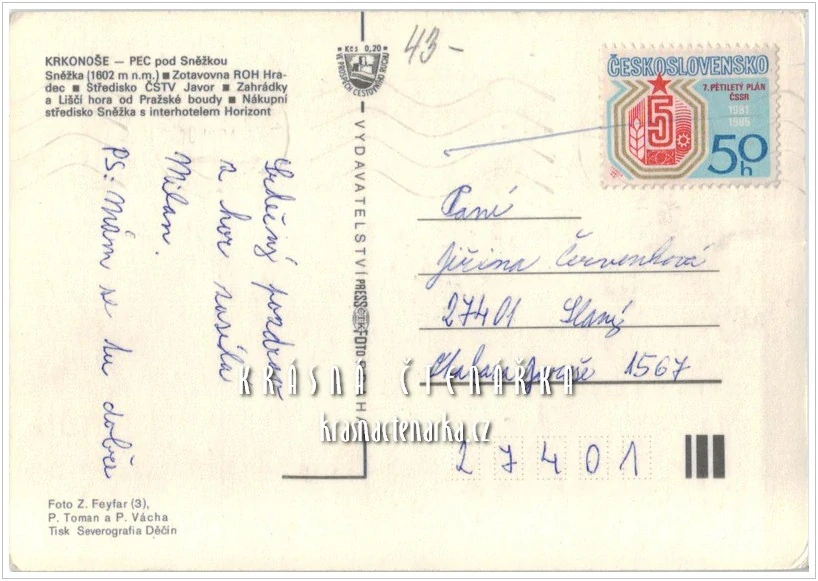 KRKONOŠE — PEC pod Sněžkou
Sněžka (1602 m n.m.) ■ Zotavovna ROH Hra-
dec ■ Středisko ČSTV Javor ■ Zahrádky
a Liščí hora od Pražské boudy ■ Nákupní
středisko Sněžka s interhotelem Horizont
Kčs 0,20
VE PROSPĚCH CESTOVNÍHO RUCHU
43-
ČESKOSLOVENSKO
7. PĚTILETÝ PLÁN
ČSSR
1981
1985
5
50h
Srdečný pozdrav
z hor zasílá
Milan.
PS: Mám se tu dobře
VYDAVATELSTVÍ PRESSFOTO
PRAHA
Paní
Jiřina Červenková
27401 Slaný
1567
KRÁSNÁ ČTENÁŘKA
krasnactenarka.cz
27401
Foto Z. Feyfar (3),
P. Toman a P. Vácha
Tisk Severografia Děčín